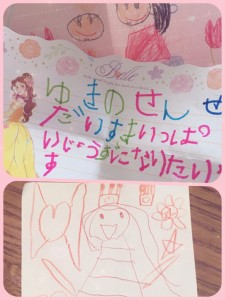 Belle
ゆきのせんせ
だいすきいっぱ
いじょうずになりたい
す